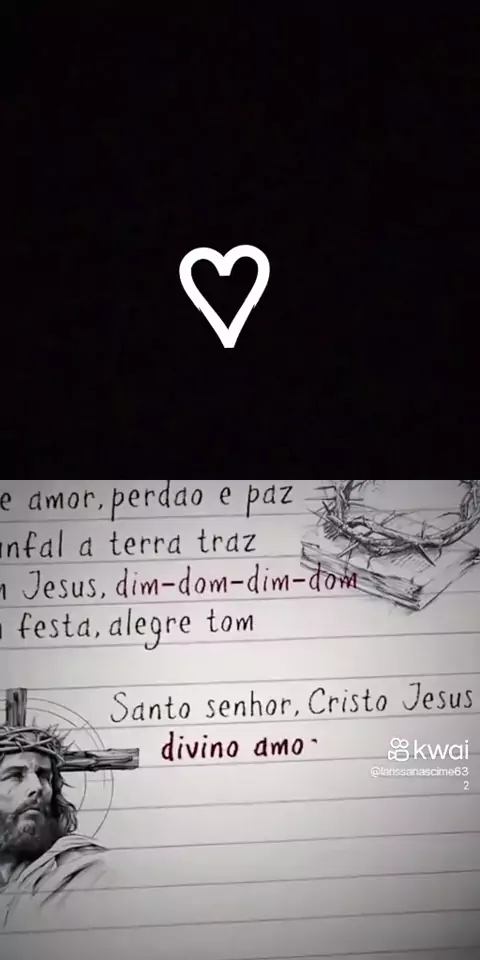 e amor, perdao e paz
nfal a terra traz
Jesus, dim-dom-dim-dom
festa, alegre tom
Santo senhor, Cristo Jesus
divino amo
kwai
@larissanascime63
2